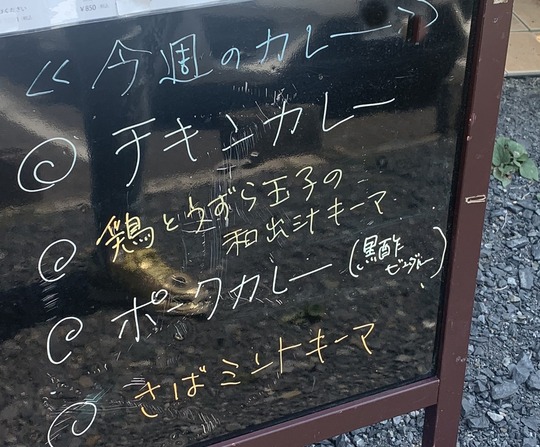 ¥850
≪今週のカレー≫
チキンカレー
鶏とうずら玉子の
和出汁キーマ
ポークカレー(黒酢
ビンダルー)
さばミントキーマ